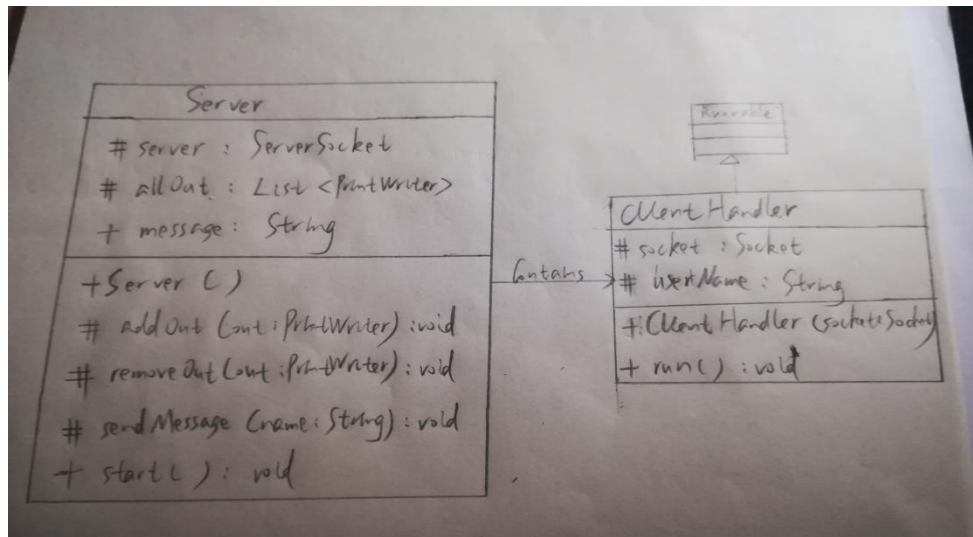 Server
# server : ServerSocket
# allOut : List <PrintWriter>
+ message : String
+ Server ( )
# addOut (out : PrintWriter) : void
# removeOut (out : PrintWriter) : void
# sendMessage (name : String) : void
+ start ( ) : void
Contains
Runnable
ClientHandler
# socket : Socket
# userName : String
+ : ClientHandler (socket : Socket)
+ run ( ) : void